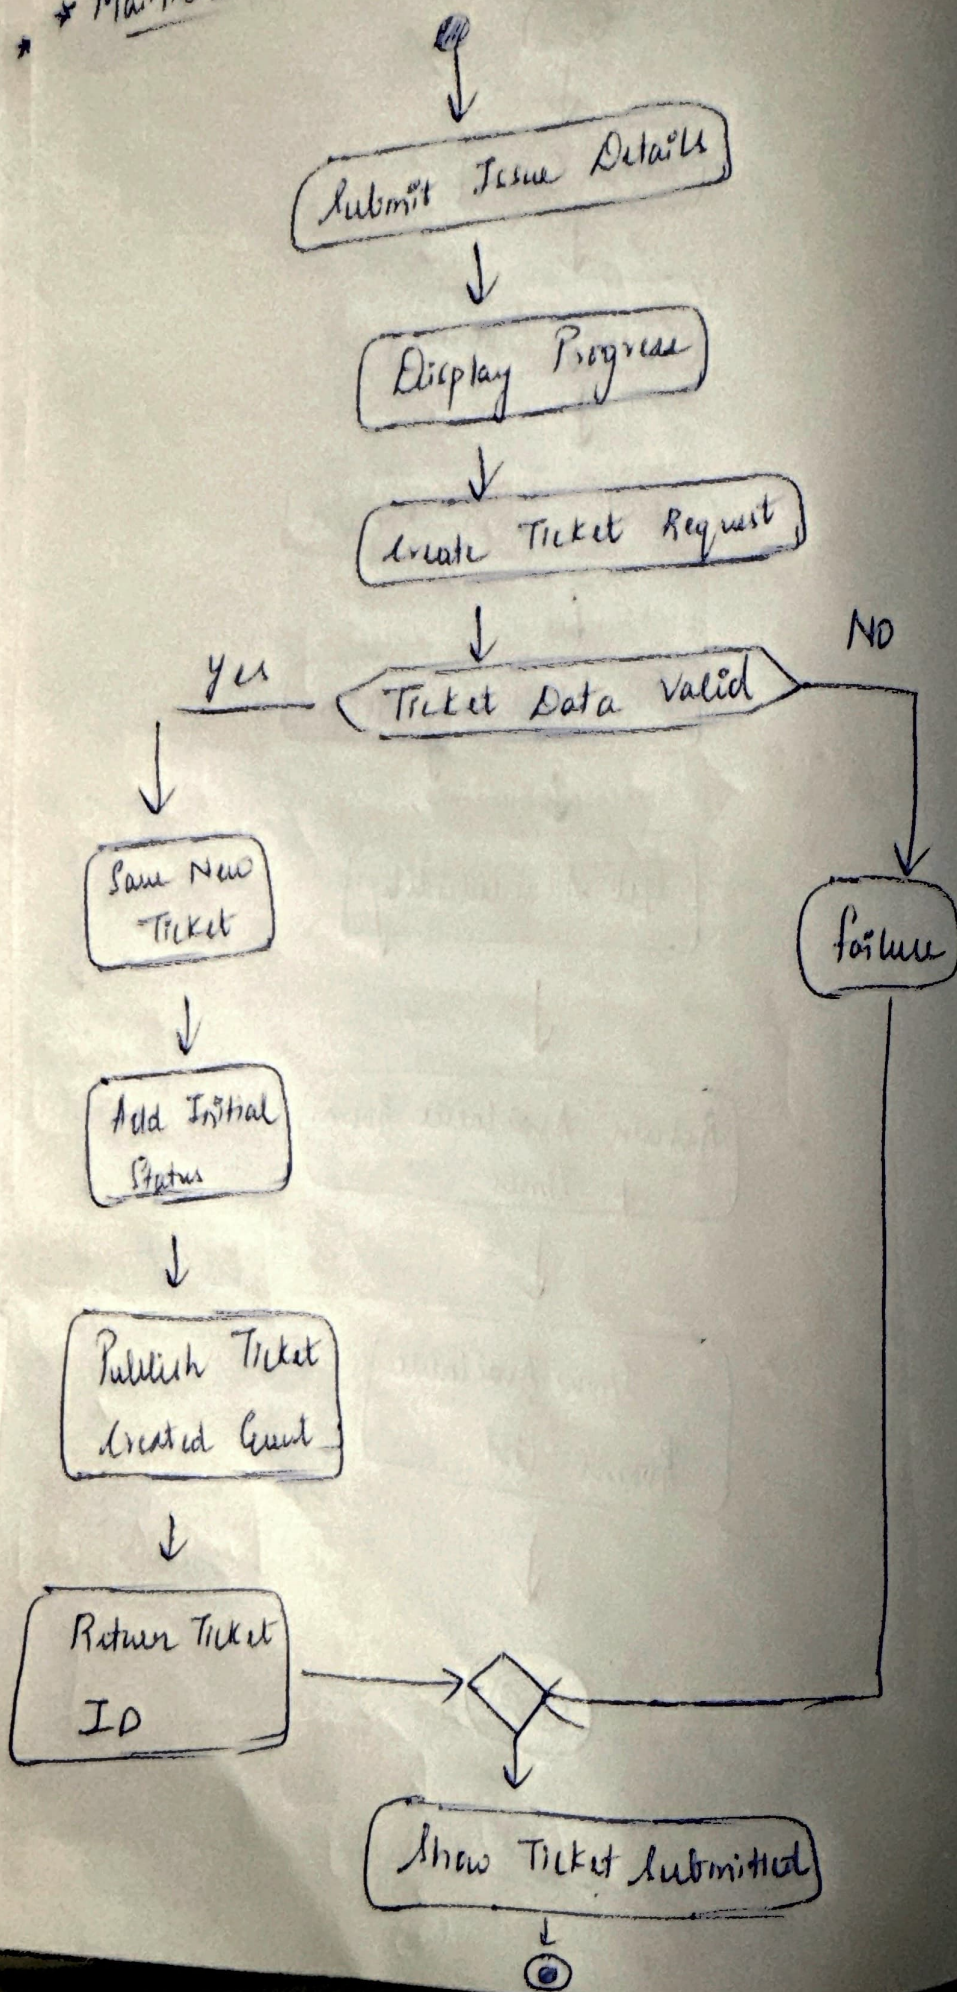 Submit Issue Details
Display Progress
Create Ticket Request
Yes
NO
Ticket Data Valid
Save New
Ticket
Failure
Add Initial
Status
Publish Ticket
Created Event
Return Ticket
ID
Show Ticket Submitted